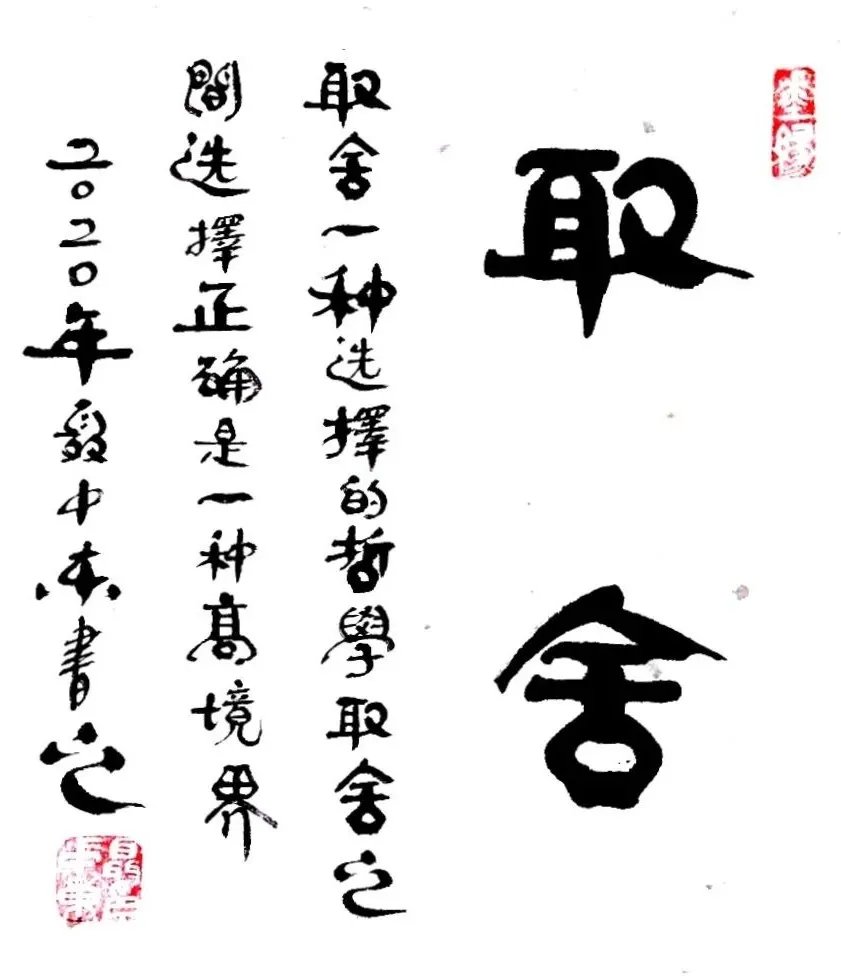 取舍
取舍一种选擇的哲學取舍之
間选擇正确是一种高境界
二〇二〇年中書之